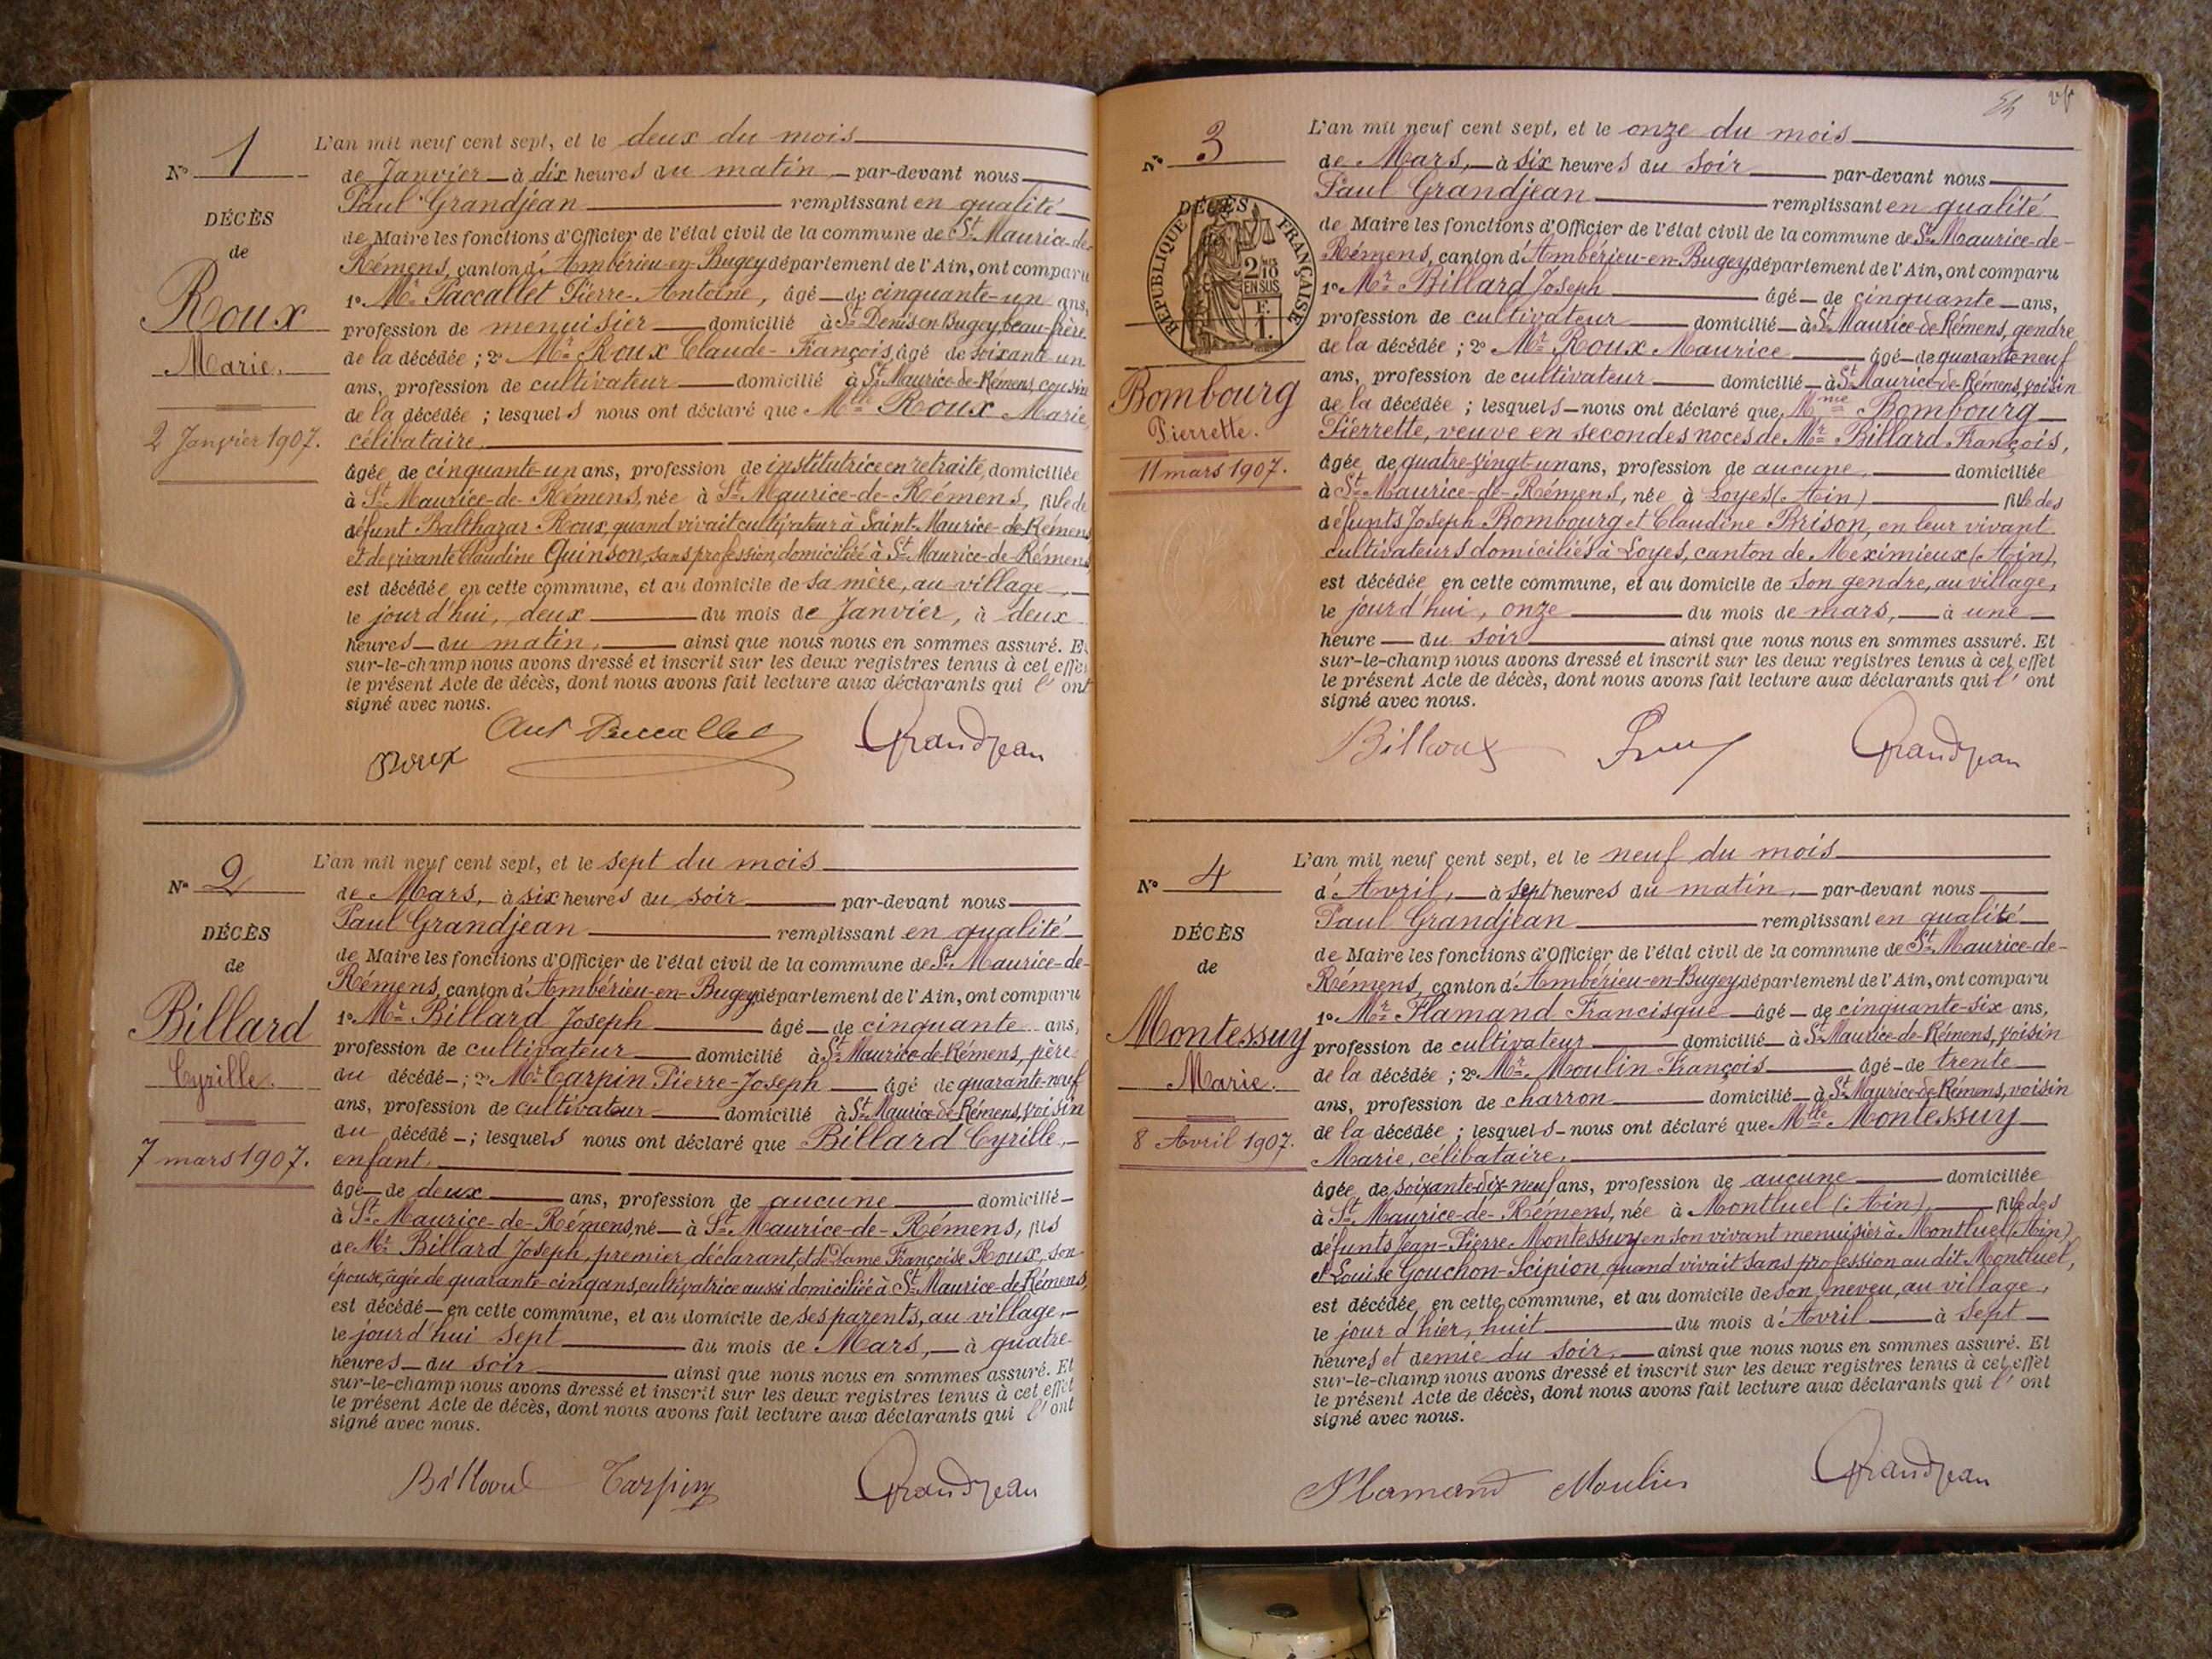 L'an mil neuf cent sept, et le deux du mois
N° 1
de Janvier à dix heures du matin, par-devant nous
Paul Grandjean remplissant en qualité
DÉCÈS
de Maire les fonctions d'Officier de l'état civil de la commune de St Maurice-de-
de
Rémens, canton d'Ambérieu-en-Bugey département de l'Ain, ont comparu
Roux
1° Mr Paccallet Pierre-Antoine, âgé de cinquante-un ans,
profession de menuisier domicilié à St Denis en Bugey, beau-frère
Marie.
de la décédée ; 2° Mr Roux Claude-François, âgé de soixante-un
ans, profession de cultivateur domicilié à St Maurice-de-Rémens, cousin
de la décédée ; lesquels nous ont déclaré que Mlle Roux Marie,
2 Janvier 1907.
célibataire
âgée de cinquante-un ans, profession de institutrice en retraite, domiciliée
à St Maurice-de-Rémens, née à St Maurice-de-Rémens, fille de
défunt Balthazar Roux, quand vivait cultivateur à Saint-Maurice-de-Rémens
et de vivante Claudine Quinson, sans profession, domiciliée à St Maurice-de-Rémens
est décédée en cette commune, et au domicile de sa mère, au village,
le jour d'hui, deux du mois de Janvier, à deux
heures du matin, ainsi que nous nous en sommes assuré. Et
sur-le-champ nous avons dressé et inscrit sur les deux registres tenus à cet effet
le présent Acte de décès, dont nous avons fait lecture aux déclarants qui l'ont
signé avec nous.
Roux Ant Paccallet Grandjean
L'an mil neuf cent sept, et le sept du mois
N° 2
de Mars, à six heures du soir par-devant nous
Paul Grandjean remplissant en qualité
DÉCÈS
de Maire les fonctions d'Officier de l'état civil de la commune de St Maurice-de-
de
Rémens, canton d'Ambérieu-en-Bugey département de l'Ain, ont comparu
Billard
1° Mr Billard Joseph âgé de cinquante ans,
profession de cultivateur domicilié à St Maurice-de-Rémens, père
Cyrille.
du décédé ; 2° Mr Carpin Pierre-Joseph âgé de quarante-neuf
ans, profession de cultivateur domicilié à St Maurice-de-Rémens, voisin
du décédé ; lesquels nous ont déclaré que Billard Cyrille,
7 mars 1907.
enfant.
âgé de deux ans, profession de aucune domicilié
à St Maurice-de-Rémens, né à St Maurice-de-Rémens, fils
de Mr Billard Joseph, premier déclarant, et de Dame Françoise Roux, son
épouse, âgée de quarante-cinq ans, cultivatrice aussi domiciliée à St Maurice-de-Rémens,
est décédé en cette commune, et au domicile de ses parents, au village,
le jour d'hui sept du mois de Mars, à quatre
heures du soir ainsi que nous nous en sommes assuré. Et
sur-le-champ nous avons dressé et inscrit sur les deux registres tenus à cet effet
le présent Acte de décès, dont nous avons fait lecture aux déclarants qui l'ont
signé avec nous.
Billard Carpin Grandjean
L'an mil neuf cent sept, et le onze du mois
N° 3
de Mars, à six heures du soir par-devant nous
Paul Grandjean remplissant en qualité
DÉCÈS
RÉPUBLIQUE FRANÇAISE
2/10 EN SUS
F.
1
de Maire les fonctions d'Officier de l'état civil de la commune de St Maurice-de-
Rémens, canton d'Ambérieu-en-Bugey, département de l'Ain, ont comparu
1° Mr Billard Joseph âgé de cinquante ans,
profession de cultivateur domicilié à St Maurice-de-Rémens, gendre
de la décédée ; 2° Mr Roux Maurice âgé de quarante neuf
ans, profession de cultivateur domicilié à St Maurice-de-Rémens, voisin
Bombourg
de la décédée ; lesquels nous ont déclaré que Mme Bombourg
Pierrette.
Pierrette, veuve en secondes noces de Mr Billard François,
11 mars 1907.
âgée de quatre-vingt-un ans, profession de aucune, domiciliée
à St Maurice-de-Rémens, née à Loyes (Ain) fille des
défunts Joseph Bombourg et Claudine Brison, en leur vivant
cultivateurs domiciliés à Loyes, canton de Meximieux (Ain),
est décédée en cette commune, et au domicile de son gendre, au village,
le jour d'hui, onze du mois de mars, à une
heure du soir ainsi que nous nous en sommes assuré. Et
sur-le-champ nous avons dressé et inscrit sur les deux registres tenus à cet effet
le présent Acte de décès, dont nous avons fait lecture aux déclarants qui l'ont
signé avec nous.
Billard Grandjean
L'an mil neuf cent sept, et le neuf du mois
N° 4
d'Avril, à sept heures du matin, par-devant nous
Paul Grandjean remplissant en qualité
DÉCÈS
de Maire les fonctions d'Officier de l'état civil de la commune de St Maurice-de-
de
Rémens, canton d'Ambérieu-en-Bugey, département de l'Ain, ont comparu
Montessuy
1° Mr Flamand Francisque âgé de cinquante-six ans,
profession de cultivateur domicilié à St Maurice-de-Rémens, voisin
Marie.
de la décédée ; 2° Mr Moulin François âgé de trente
ans, profession de charron domicilié à St Maurice-de-Rémens, voisin
8 Avril 1907.
de la décédée ; lesquels nous ont déclaré que Mlle Montessuy
Marie, célibataire,
âgée de soixante-dix-neuf ans, profession de aucune domiciliée
à St Maurice-de-Rémens, née à Montluel (Ain), fille des
défunts Jean-Pierre Montessuy en son vivant menuisier à Montluel (Ain)
et Louise Gouchon-Scipion, quand vivait sans profession au dit Montluel,
est décédée en cette commune, et au domicile de son neveu, au village,
le jour d'hier, huit du mois d'Avril à sept
heures et demie du soir, ainsi que nous nous en sommes assuré. Et
sur-le-champ nous avons dressé et inscrit sur les deux registres tenus à cet effet
le présent Acte de décès, dont nous avons fait lecture aux déclarants qui l'ont
signé avec nous.
Flamand Moulin Grandjean